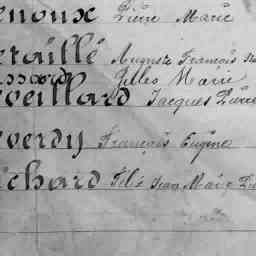 enoux Pierre Marie
etaillé Auguste François
ssard Jules Marie
eveillard Jacques Pierre
everdy François Eugène
ichard Félix Jean Marie